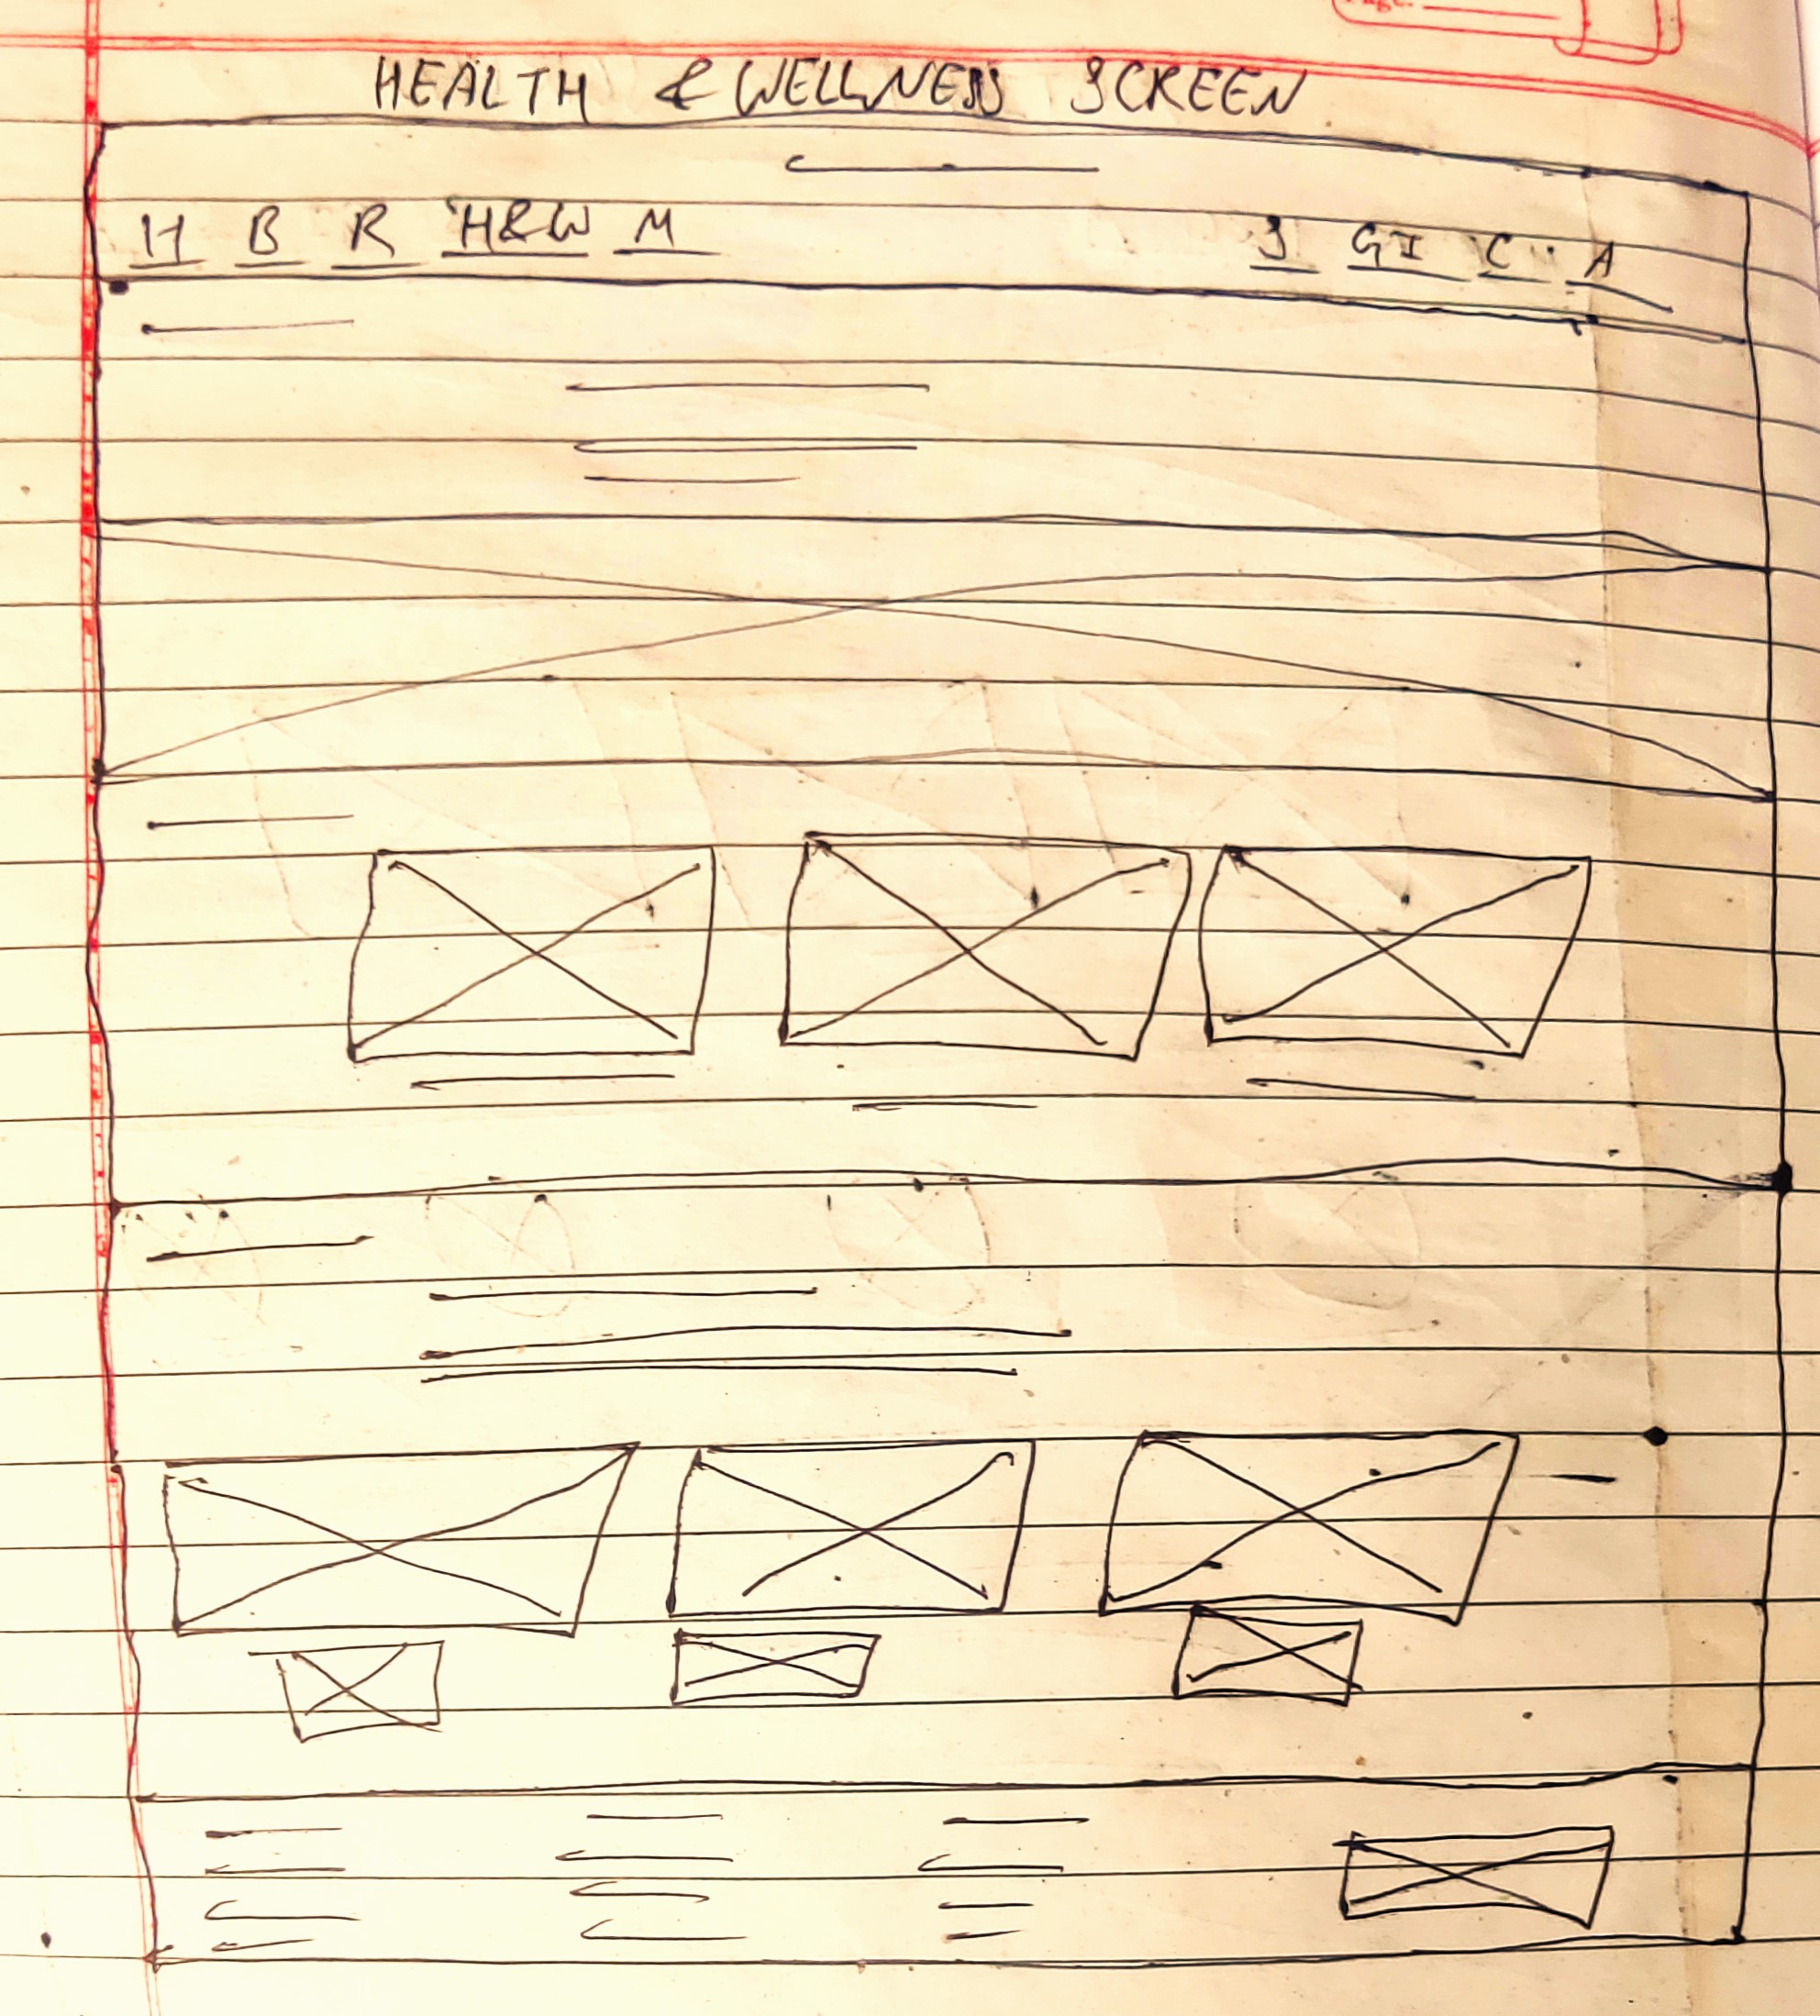 HEALTH & WELLNESS SCREEN
H B R H&W M S GI C A